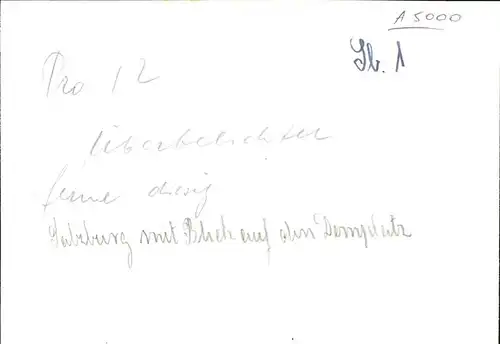 A 5000
Sb. 1
Pro 12
Überbelichtet
ferne diesig
Salzburg mit Blick auf den Domplatz